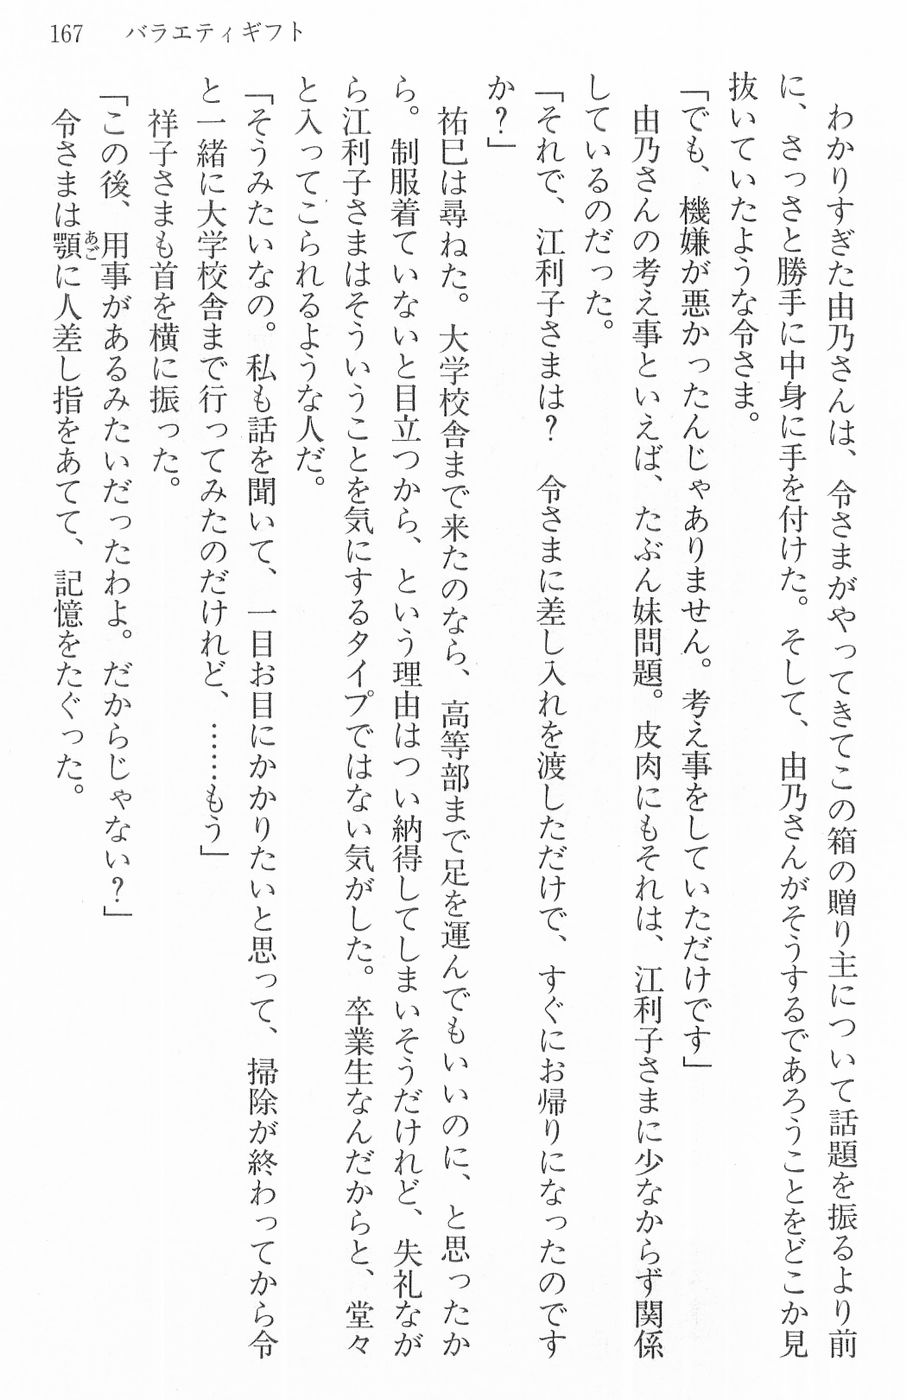 167　バラエティギフト
　わかりすぎた由乃さんは、令さまがやってきてこの箱の贈り主について話題を振るより前
に、さっさと勝手に中身に手を付けた。そして、由乃さんがそうするであろうことをどこか見
抜いていたような令さま。
「でも、機嫌が悪かったんじゃありません。考え事をしていただけです」
　由乃さんの考え事といえば、たぶん妹問題。皮肉にもそれは、江利子さまに少なからず関係
しているのだった。
「それで、江利子さまは？　令さまに差し入れを渡しただけで、すぐにお帰りになったのです
か？」
　祐巳は尋ねた。大学校舎まで来たのなら、高等部まで足を運んでもいいのに、と思ったか
ら。制服着ていないと目立つから、という理由はつい納得してしまいそうだけれど、失礼なが
ら江利子さまはそういうことを気にするタイプではない気がした。卒業生なんだからと、堂々
と入ってこられるような人だ。
「そうみたいなの。私も話を聞いて、一目お目にかかりたいと思って、掃除が終わってから令
と一緒に大学校舎まで行ってみたのだけれど、……もう」
　祥子さまも首を横に振った。
「この後、用事があるみたいだったわよ。だからじゃない？」
　令さまは顎あごに人差し指をあてて、記憶をたぐった。